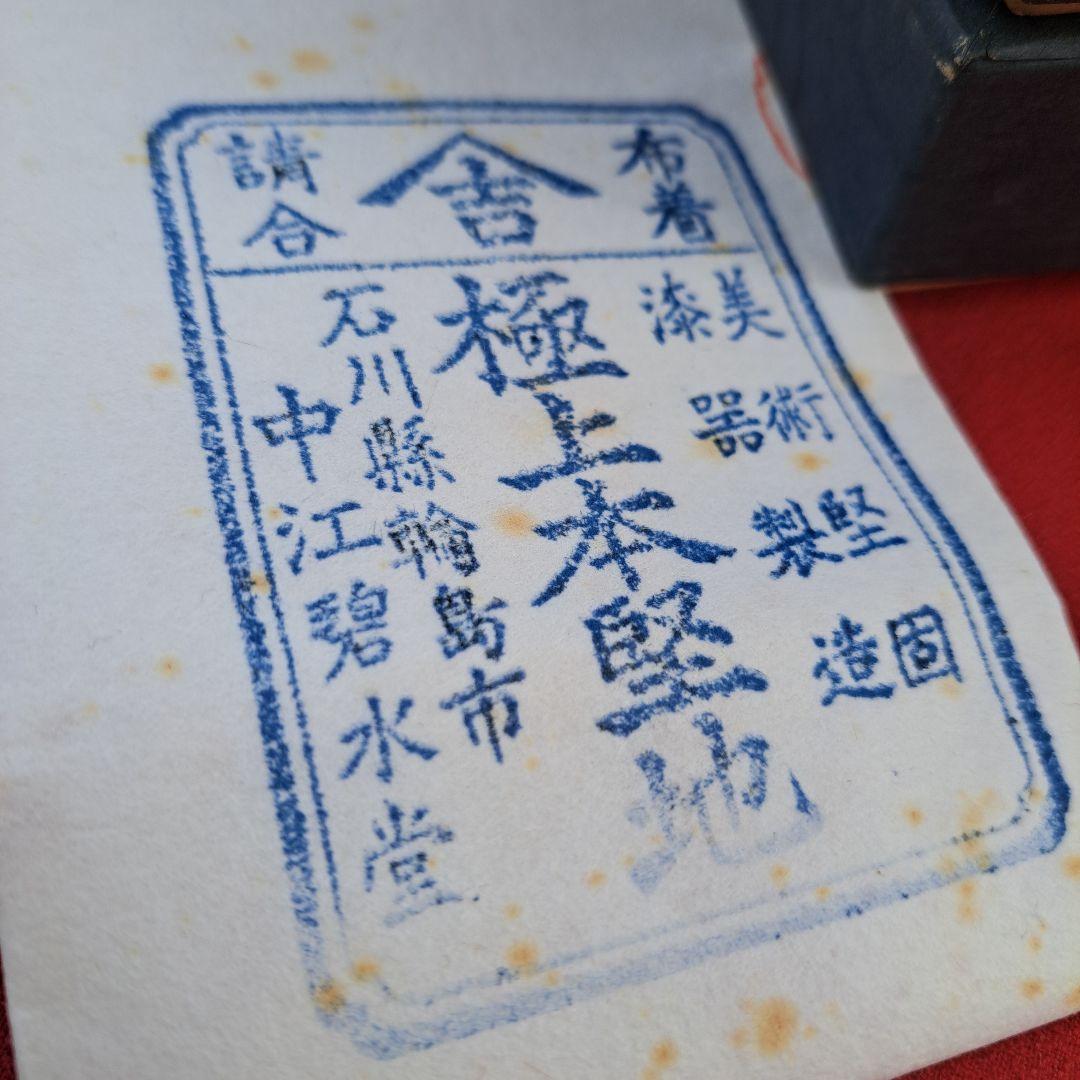 布着
吉
請合
美術堅固
漆器製造
極上本堅地
石川縣輪島市
中江碧水堂